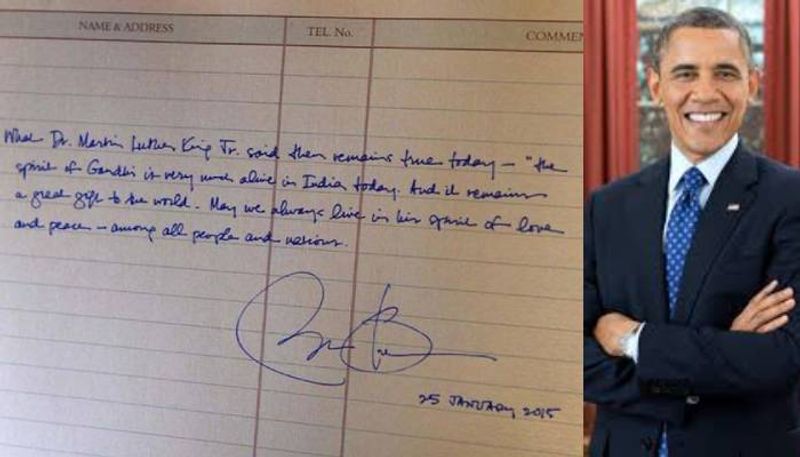 NAME & ADDRESS
TEL. No.
COMMEN
What Dr. Martin Luther King Jr. said then remains true today – "the
spirit of Gandhi is very much alive in India today. And it remains
a great gift to the world. May we always live in his spirit of love
and peace – among all people and nations.
25 JANUARY 2015